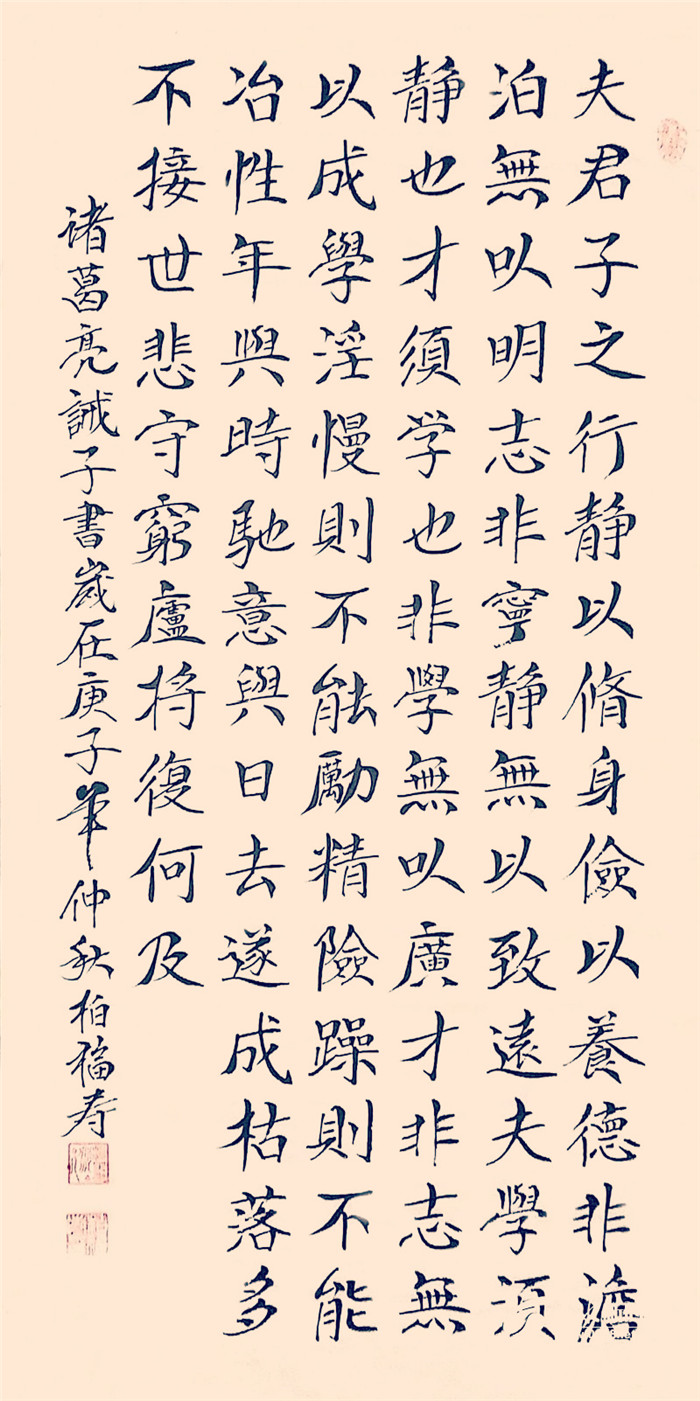 夫君子之行静以脩身儉以養德非澹
泊無以明志非寧静無以致遠夫學須
静也才須学也非學無以廣才非志無
以成學淫慢則不能勵精險躁則不能
冶性年與時馳意與日去遂成枯落多
不接世悲守窮廬将復何及
诸葛亮誡子書嵗在庚子年仲秋柏福寿